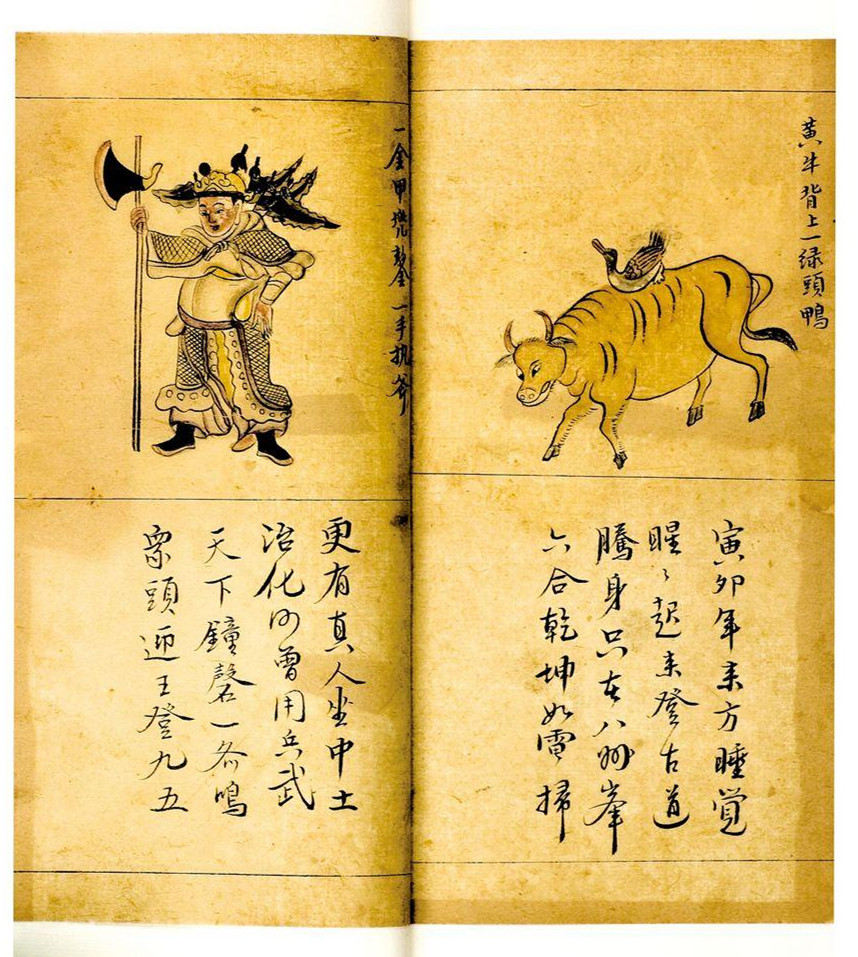 黄牛背上一绿頭鴨
寅卯年来方睡覚
睲〻起来登古道
騰身只在八卦峯
六合乾坤如電掃
一金甲兠鍪一手執斧
更有真人坐中土
治化何曾用兵武
天下鐘磬一各鳴
衆頭迎王登九五